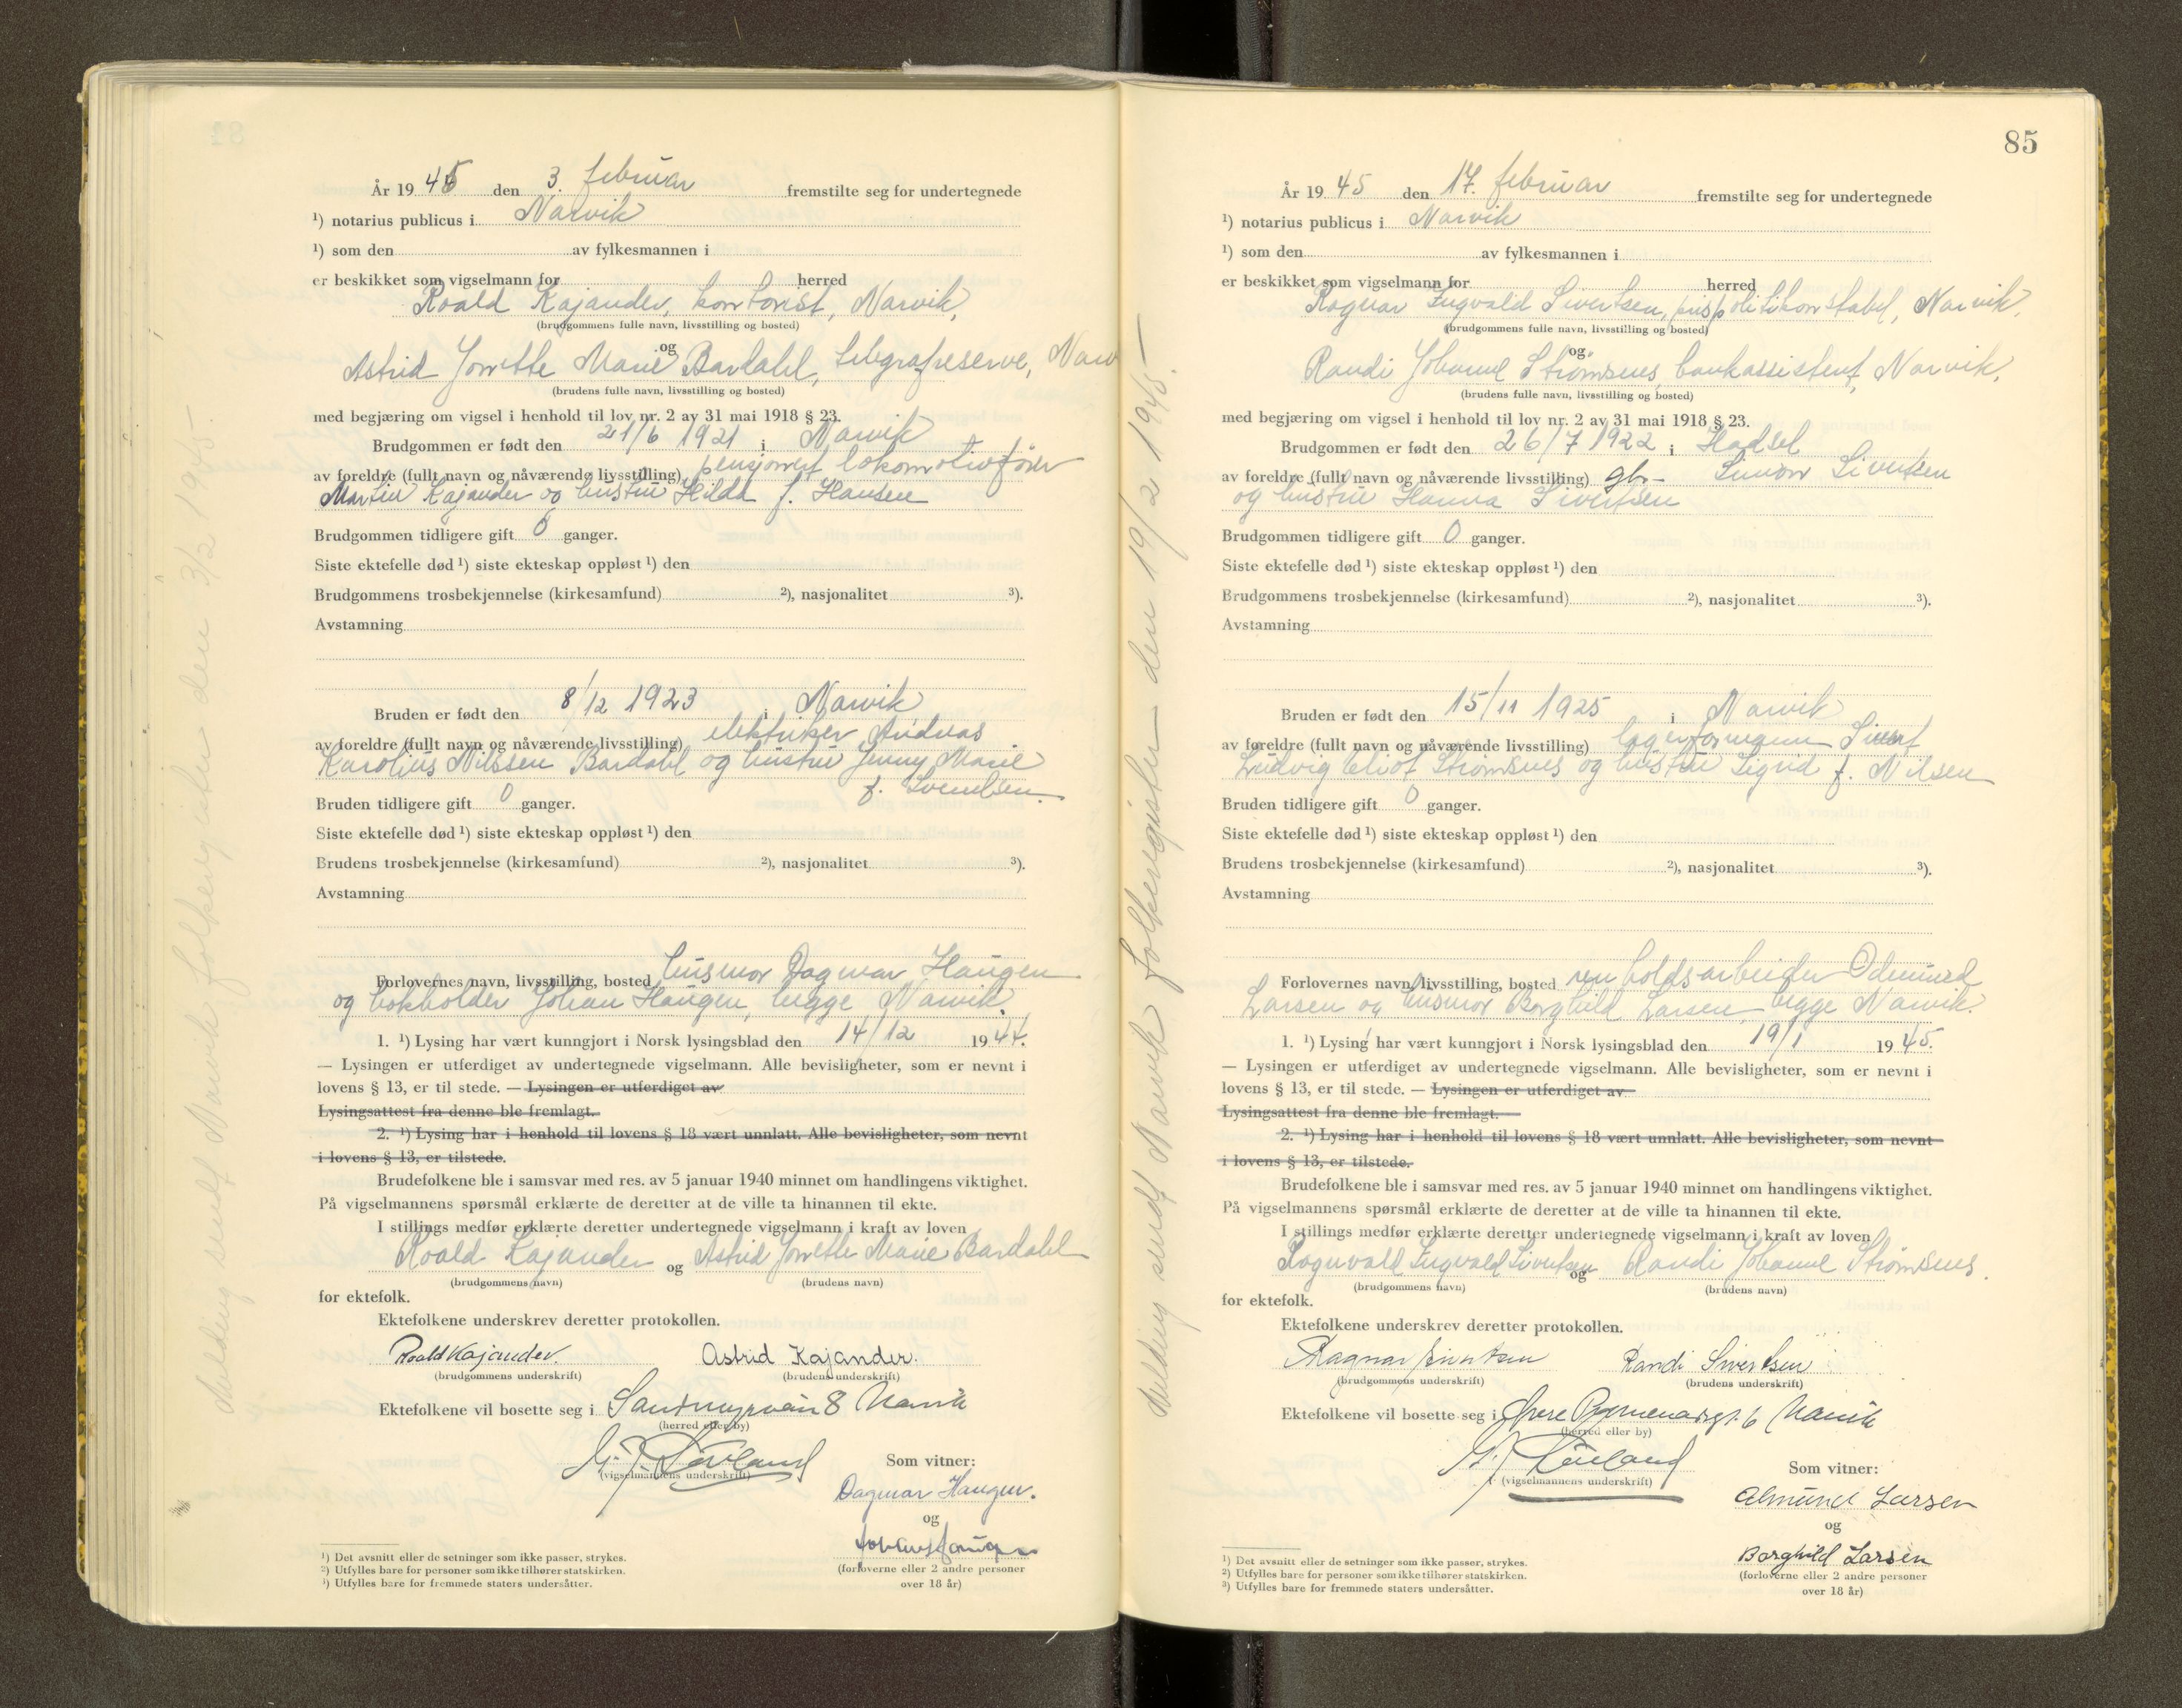 År 19 45 den 3. februar fremstilte seg for undertegnede
¹) notarius publicus i Narvik
¹) som den av fylkesmannen i
er beskikket som vigselmann for herred
Roald Kajander, kontorist, Narvik,
(brudgommens fulle navn, livsstilling og bosted)
og
Astrid Jorette Marie Bardahl, telegrafreserve, Narv
(brudens fulle navn, livsstilling og bosted)
med begjæring om vigsel i henhold til lov nr. 2 av 31 mai 1918 § 23.
Brudgommen er født den 21/6 1921 i Narvik
av foreldre (fullt navn og nåværende livsstilling) pensjonert lokomotivfører
Martin Kajander og hustru Hilda f. Hansen
Brudgommen tidligere gift 0 ganger.
Siste ektefelle død ¹) siste ekteskap oppløst ¹) den
Brudgommens trosbekjennelse (kirkesamfund) ²), nasjonalitet ³).
Avstamning
Bruden er født den 8/12 1923 i Narvik
av foreldre (fullt navn og nåværende livsstilling) elektriker Andreas
Karolius Nilssen Bardahl og hustru Jenny Marie
f. Svendsen.
Bruden tidligere gift 0 ganger.
Siste ektefelle død ¹) siste ekteskap oppløst ¹) den
Brudens trosbekjennelse (kirkesamfund) ²), nasjonalitet ³).
Avstamning
Forlovernes navn, livsstilling, bosted husmor Dagmar Haugen
og bokholder Johan Haugen, begge Narvik.
1. ¹) Lysing har vært kunngjort i Norsk lysingsblad den 14/12 19 44.
— Lysingen er utferdiget av undertegnede vigselmann. Alle bevisligheter, som er nevnt i
lovens § 13, er til stede. — Lysingen er utferdiget av
Lysingsattest fra denne ble fremlagt.
2. ¹) Lysing har i henhold til lovens § 18 vært unnlatt. Alle bevisligheter, som nevnt
i lovens § 13, er tilstede.
Brudefolkene ble i samsvar med res. av 5 januar 1940 minnet om handlingens viktighet.
På vigselmannens spørsmål erklærte de deretter at de ville ta hinannen til ekte.
I stillings medfør erklærte deretter undertegnede vigselmann i kraft av loven
Roald Kajander og Astrid Jorette Marie Bardahl
(brudgommens navn) (brudens navn)
for ektefolk.
Ektefolkene underskrev deretter protokollen.
Roald Kajander. Astrid Kajander.
(brudgommens underskrift) (brudens underskrift)
Ektefolkene vil bosette seg i 8 Narvik
(herred eller by)
(vigselmannens underskrift)
Som vitner:
Dagmar Haugen.
og
Johan Haugen
(forloverne eller 2 andre personer
over 18 år)
¹) Det avsnitt eller de setninger som ikke passer, strykes.
²) Utfylles bare for personer som ikke tilhører statskirken.
³) Utfylles bare for fremmede staters undersåtter.
Melding sendt Narvik folkeregister den 3/2 1945 -
85
År 19 45 den 17. februar fremstilte seg for undertegnede
¹) notarius publicus i Narvik
¹) som den av fylkesmannen i
er beskikket som vigselmann for herred
Ragnar Ingvald Sivertsen, prispolitikonstabel, Narvik,
(brudgommens fulle navn, livsstilling og bosted)
og
Randi Johanne Strømsnes, bankassistent, Narvik,
(brudens fulle navn, livsstilling og bosted)
med begjæring om vigsel i henhold til lov nr. 2 av 31 mai 1918 § 23.
Brudgommen er født den 26/7 1922 i Hadsel
av foreldre (fullt navn og nåværende livsstilling) gbr. Simon Sivertsen
og hustru Hanna Sivertsen
Brudgommen tidligere gift 0 ganger.
Siste ektefelle død ¹) siste ekteskap oppløst ¹) den
Brudgommens trosbekjennelse (kirkesamfund) ²), nasjonalitet ³).
Avstamning
Bruden er født den 15/11 1925 i Narvik
av foreldre (fullt navn og nåværende livsstilling) lagerformann Sivert
Ludvig Strømsnes og hustru Sigrid f. Nilsen
Bruden tidligere gift 0 ganger.
Siste ektefelle død ¹) siste ekteskap oppløst ¹) den
Brudens trosbekjennelse (kirkesamfund) ²), nasjonalitet ³).
Avstamning
Forlovernes navn, livsstilling, bosted renholdsarbeider Odmund
Larsen og husmor Borghild Larsen, begge Narvik.
1. ¹) Lysing har vært kunngjort i Norsk lysingsblad den 19/1 19 45.
— Lysingen er utferdiget av undertegnede vigselmann. Alle bevisligheter, som er nevnt i
lovens § 13, er til stede. — Lysingen er utferdiget av
Lysingsattest fra denne ble fremlagt.
2. ¹) Lysing har i henhold til lovens § 18 vært unnlatt. Alle bevisligheter, som nevnt
i lovens § 13, er tilstede.
Brudefolkene ble i samsvar med res. av 5 januar 1940 minnet om handlingens viktighet.
På vigselmannens spørsmål erklærte de deretter at de ville ta hinannen til ekte.
I stillings medfør erklærte deretter undertegnede vigselmann i kraft av loven
Ragnvald Ingvald Sivertsen og Randi Johanne Strømsnes.
(brudgommens navn) (brudens navn)
for ektefolk.
Ektefolkene underskrev deretter protokollen.
Ragnar Sivertsen Randi Sivertsen
(brudgommens underskrift) (brudens underskrift)
Ektefolkene vil bosette seg i Øvre Promenadegt. 6 Narvik
(herred eller by)
(vigselmannens underskrift)
Som vitner:
Larsen
og
Borghild Larsen
(forloverne eller 2 andre personer
over 18 år)
¹) Det avsnitt eller de setninger som ikke passer, strykes.
²) Utfylles bare for personer som ikke tilhører statskirken.
³) Utfylles bare for fremmede staters undersåtter.
Melding sendt Narvik folkeregister den 19/2 1945 -